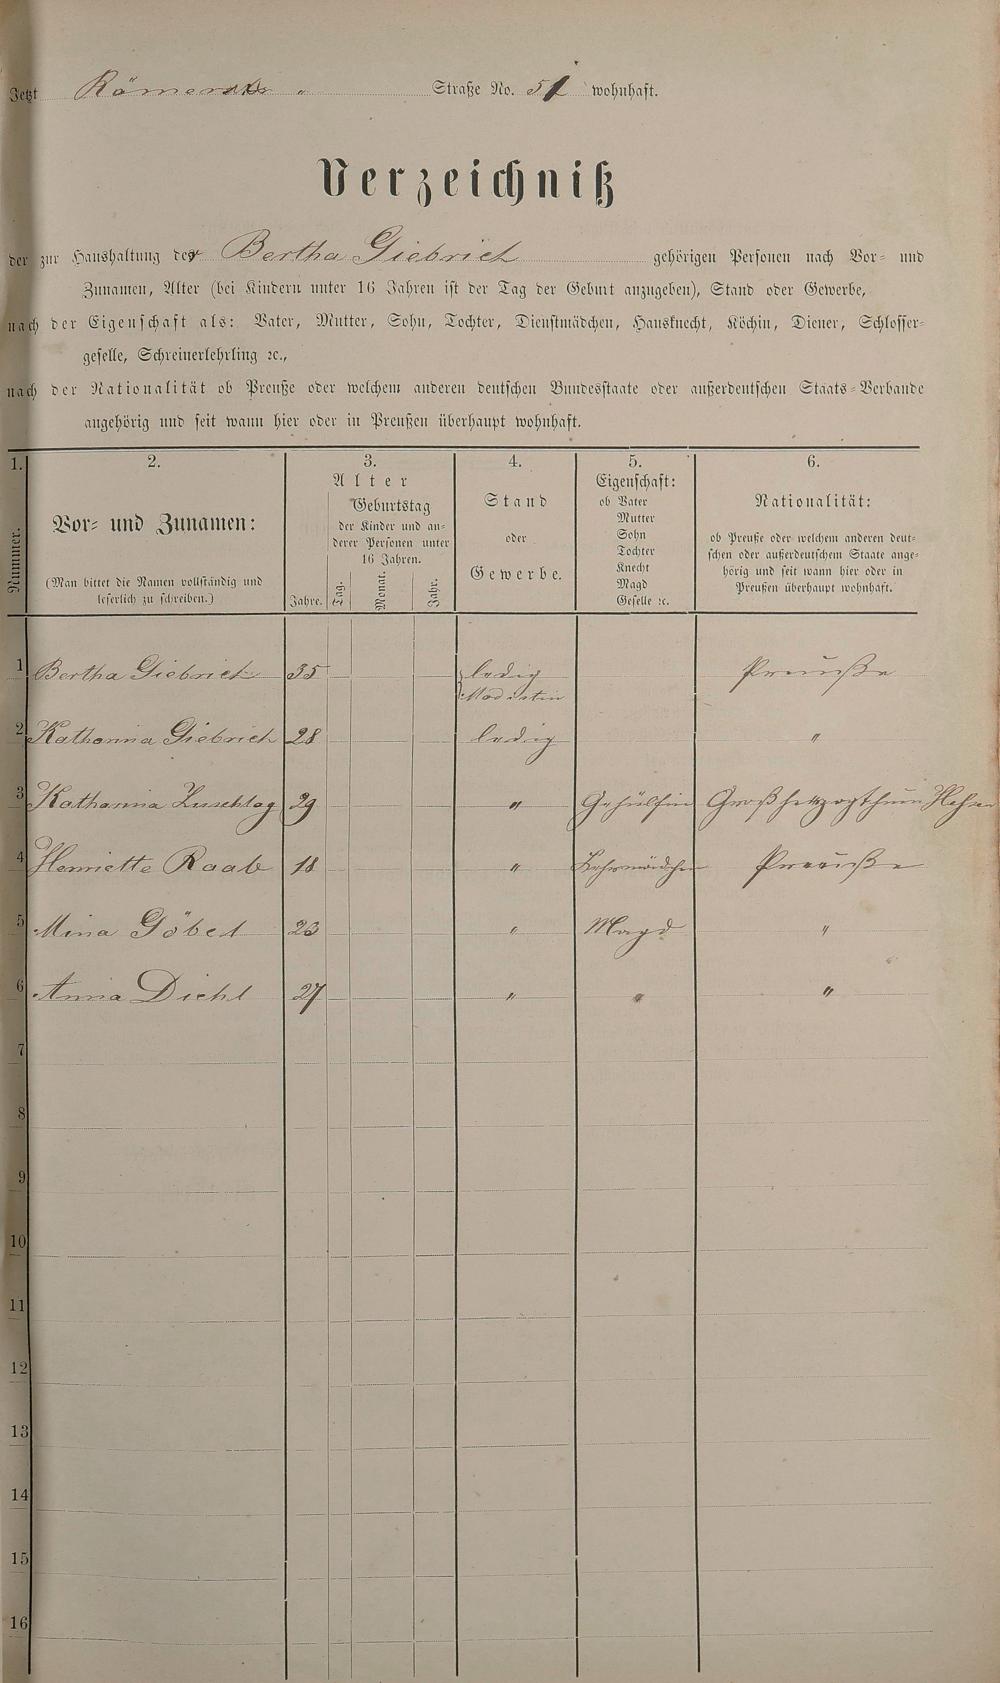 Jetzt Römerstr " Straße No. 51 wohnhaft.
Verzeichniß
der zur Haushaltung der Bertha Giebrich gehörigen Personen nach Vor- und
Zunamen, Alter (bei Kindern unter 16 Jahren ist der Tag der Geburt anzugeben), Stand oder Gewerbe,
nach der Eigenschaft als: Vater, Mutter, Sohn, Tochter, Dienstmädchen, Hausknecht, Köchin, Diener, Schlosser-
geselle, Schreinerlehrling ꝛc.,
nach der Nationalität ob Preuße oder welchem anderen deutschen Bundesstaate oder außerdeutschen Staats-Verbande
angehörig und seit wann hier oder in Preußen überhaupt wohnhaft.
1. 2. 3. 4. 5. 6.
Nummer.
Vor- und Zunamen:
(Man bittet die Namen vollständig und
leserlich zu schreiben.)
Alter
Geburtstag
der Kinder und an-
derer Personen unter
16 Jahren.
Jahre. Tag. Monat. Jahr.
Stand
oder
Gewerbe.
Eigenschaft:
ob Vater
Mutter
Sohn
Tochter
Knecht
Magd
Geselle ꝛc.
Nationalität:
ob Preuße oder welchem anderen deut-
schen oder außerdeutschem Staate ange-
hörig und seit wann hier oder in
Preußen überhaupt wohnhaft.
1 Bertha Giebrich 35 ledig Preuße
Modistin
2 Katharina Giebrich 28 ledig "
3 Katharina Zuschlag 29 " Gehülfin Großherzogthum Hessen
4 Henriette Raab 18 " Lehrmädchen Preuße
5 Mina Göbel 23 " Magd "
6 Anna Diehl 27 " " "
7
8
9
10
11
12
13
14
15
16